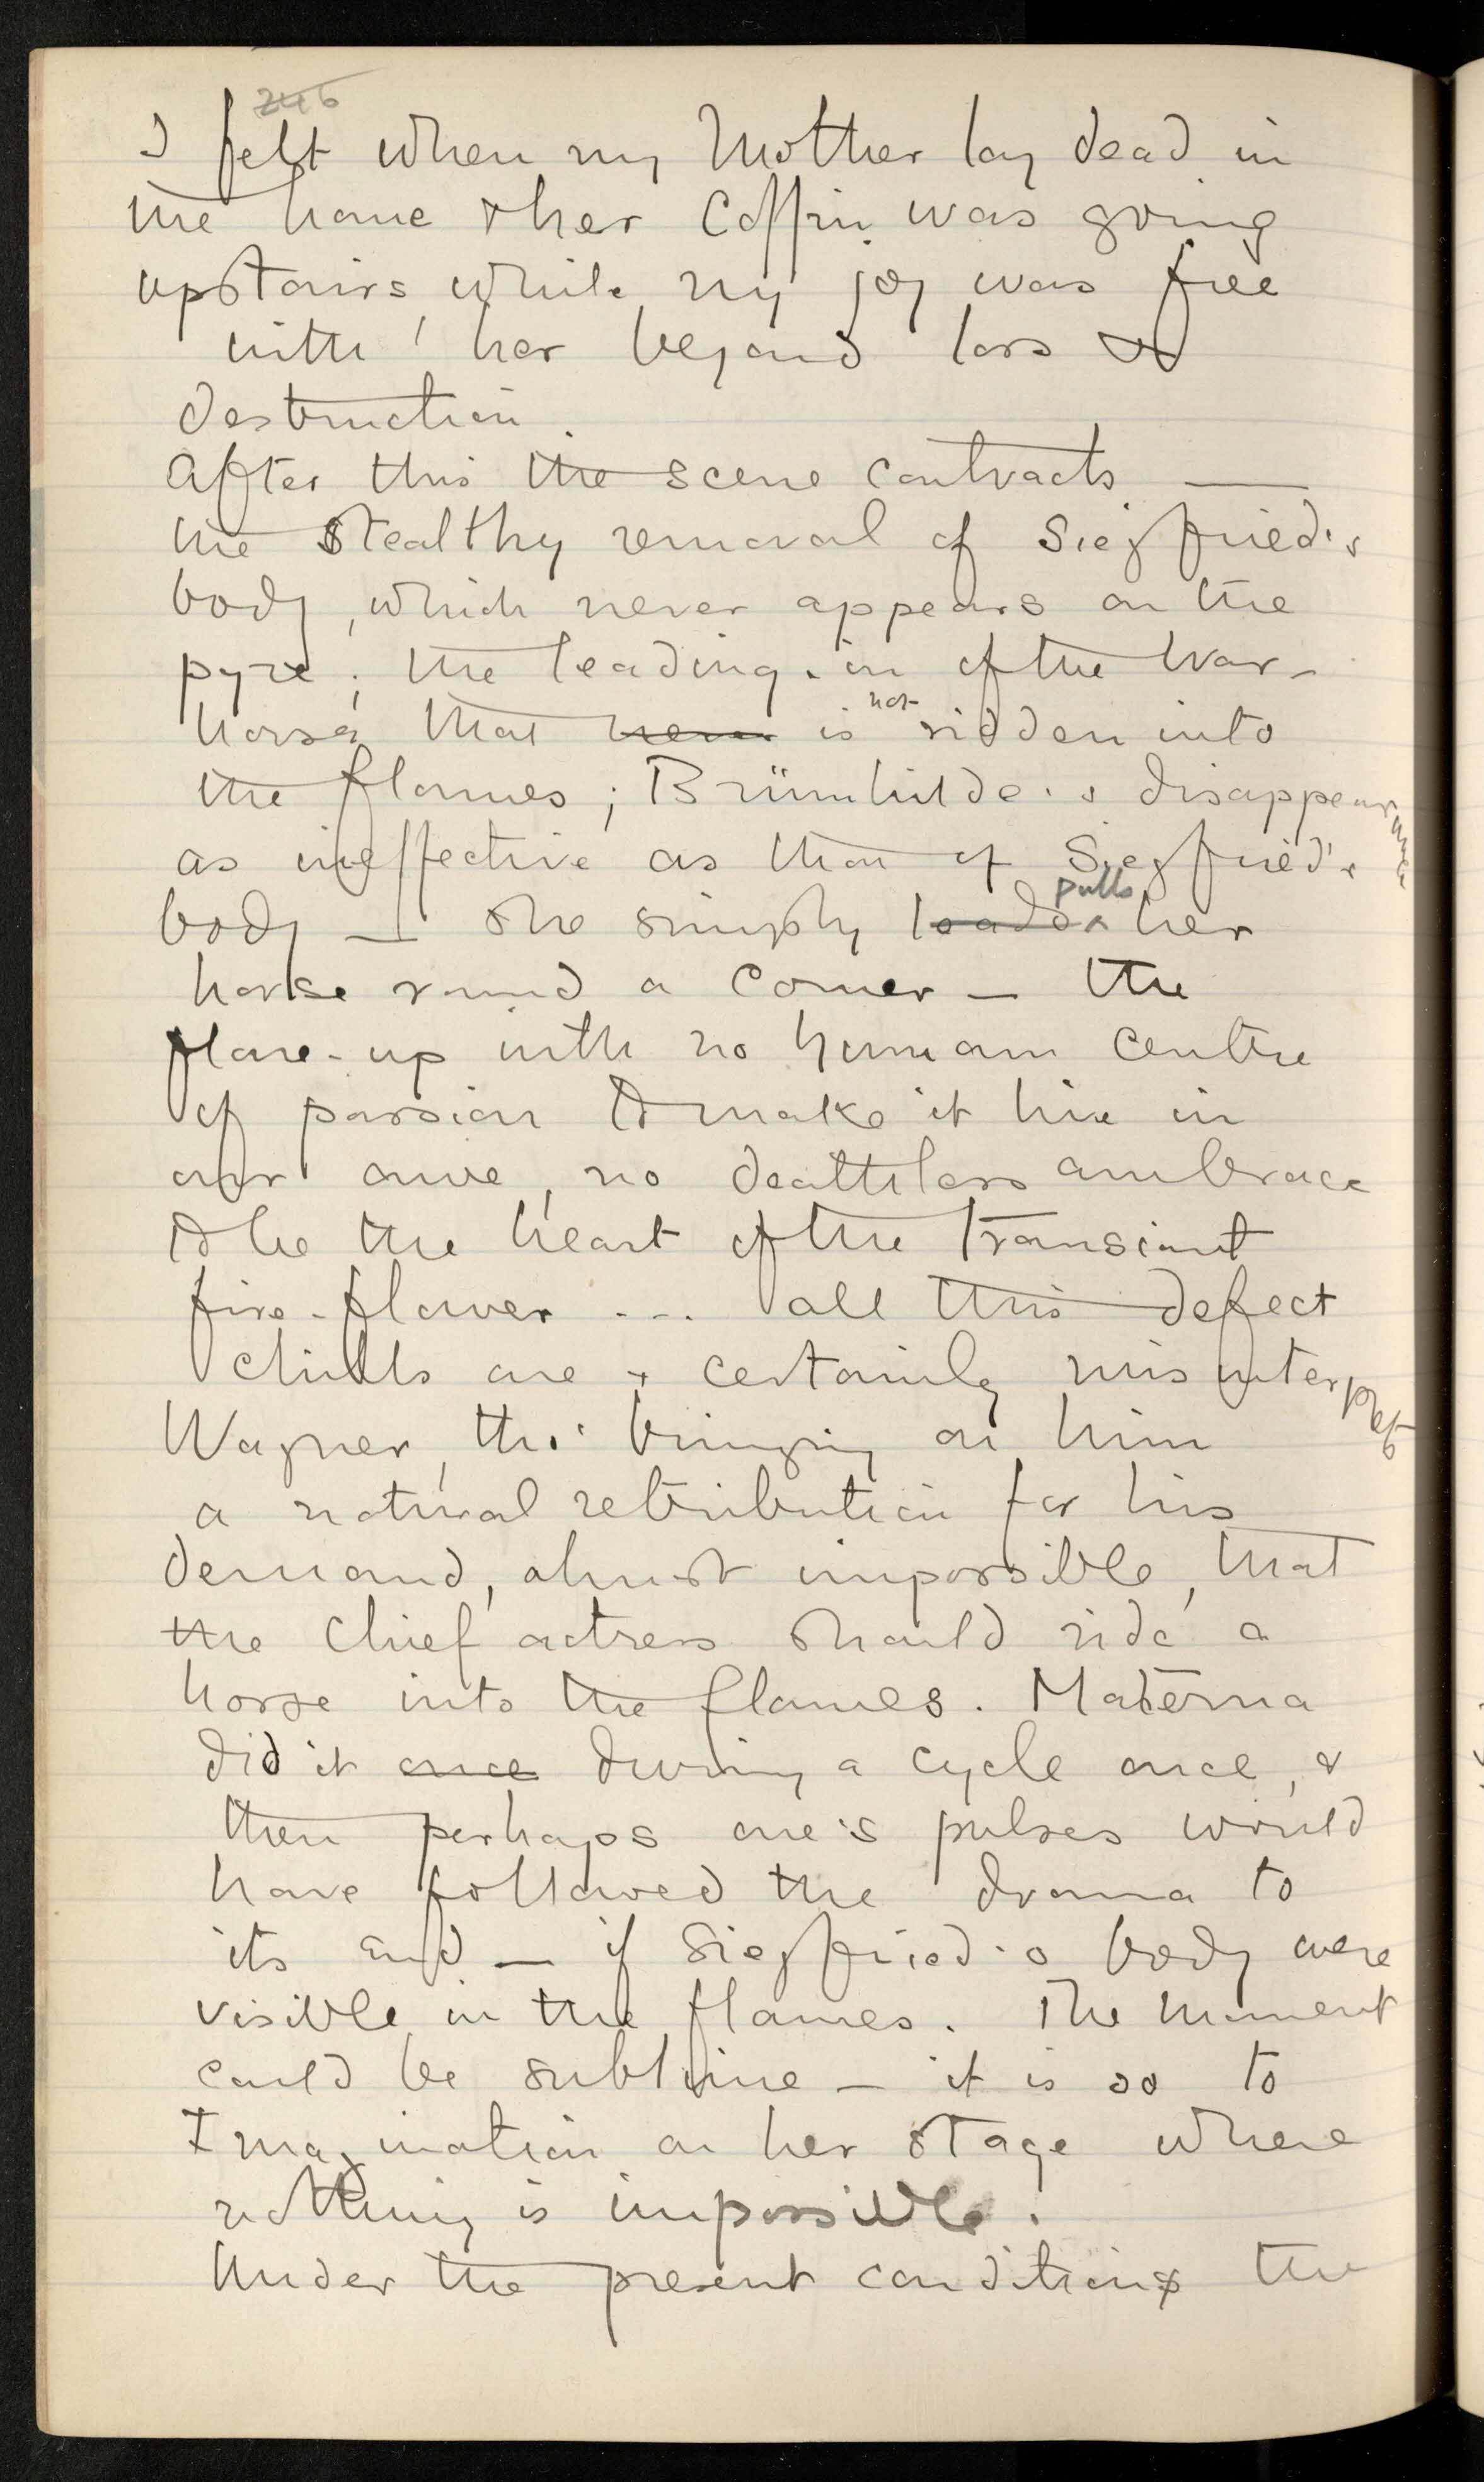 246
I felt when my Mother lay dead in
the house & her Coffin was going
upstairs, while my joy was free
with her beyond loss &
destruction.
After this the scene contracts —
the stealthy removal of Siegfried's
body, which never appears on the
pyre; the leading-in of the War-
horse that never is not ridden into
the flames; Brünnhilde's disappearance
as ineffective as that of Siegfried's
body — she simply leads pulls her
horse round a corner — the
flare-up with no human centre
of passion to make it live in
our awe, no deathless embrace
to be the heart of the transient
fire-flower ... all this defect
chills one & certainly misinterprets
Wagner, tho' bringing on him
a natural retribution for his
demand, almost impossible, that
the chief actress should ride a
horse into the flames. Materna
did it once during a cycle once, &
then perhaps one's pulses would
have followed the drama to
its end — if Siegfried's body were
visible in the flames. The moment
could be sublime — it is so to
Imagination on her stage where
nothing is impossible.
Under the present conditions the